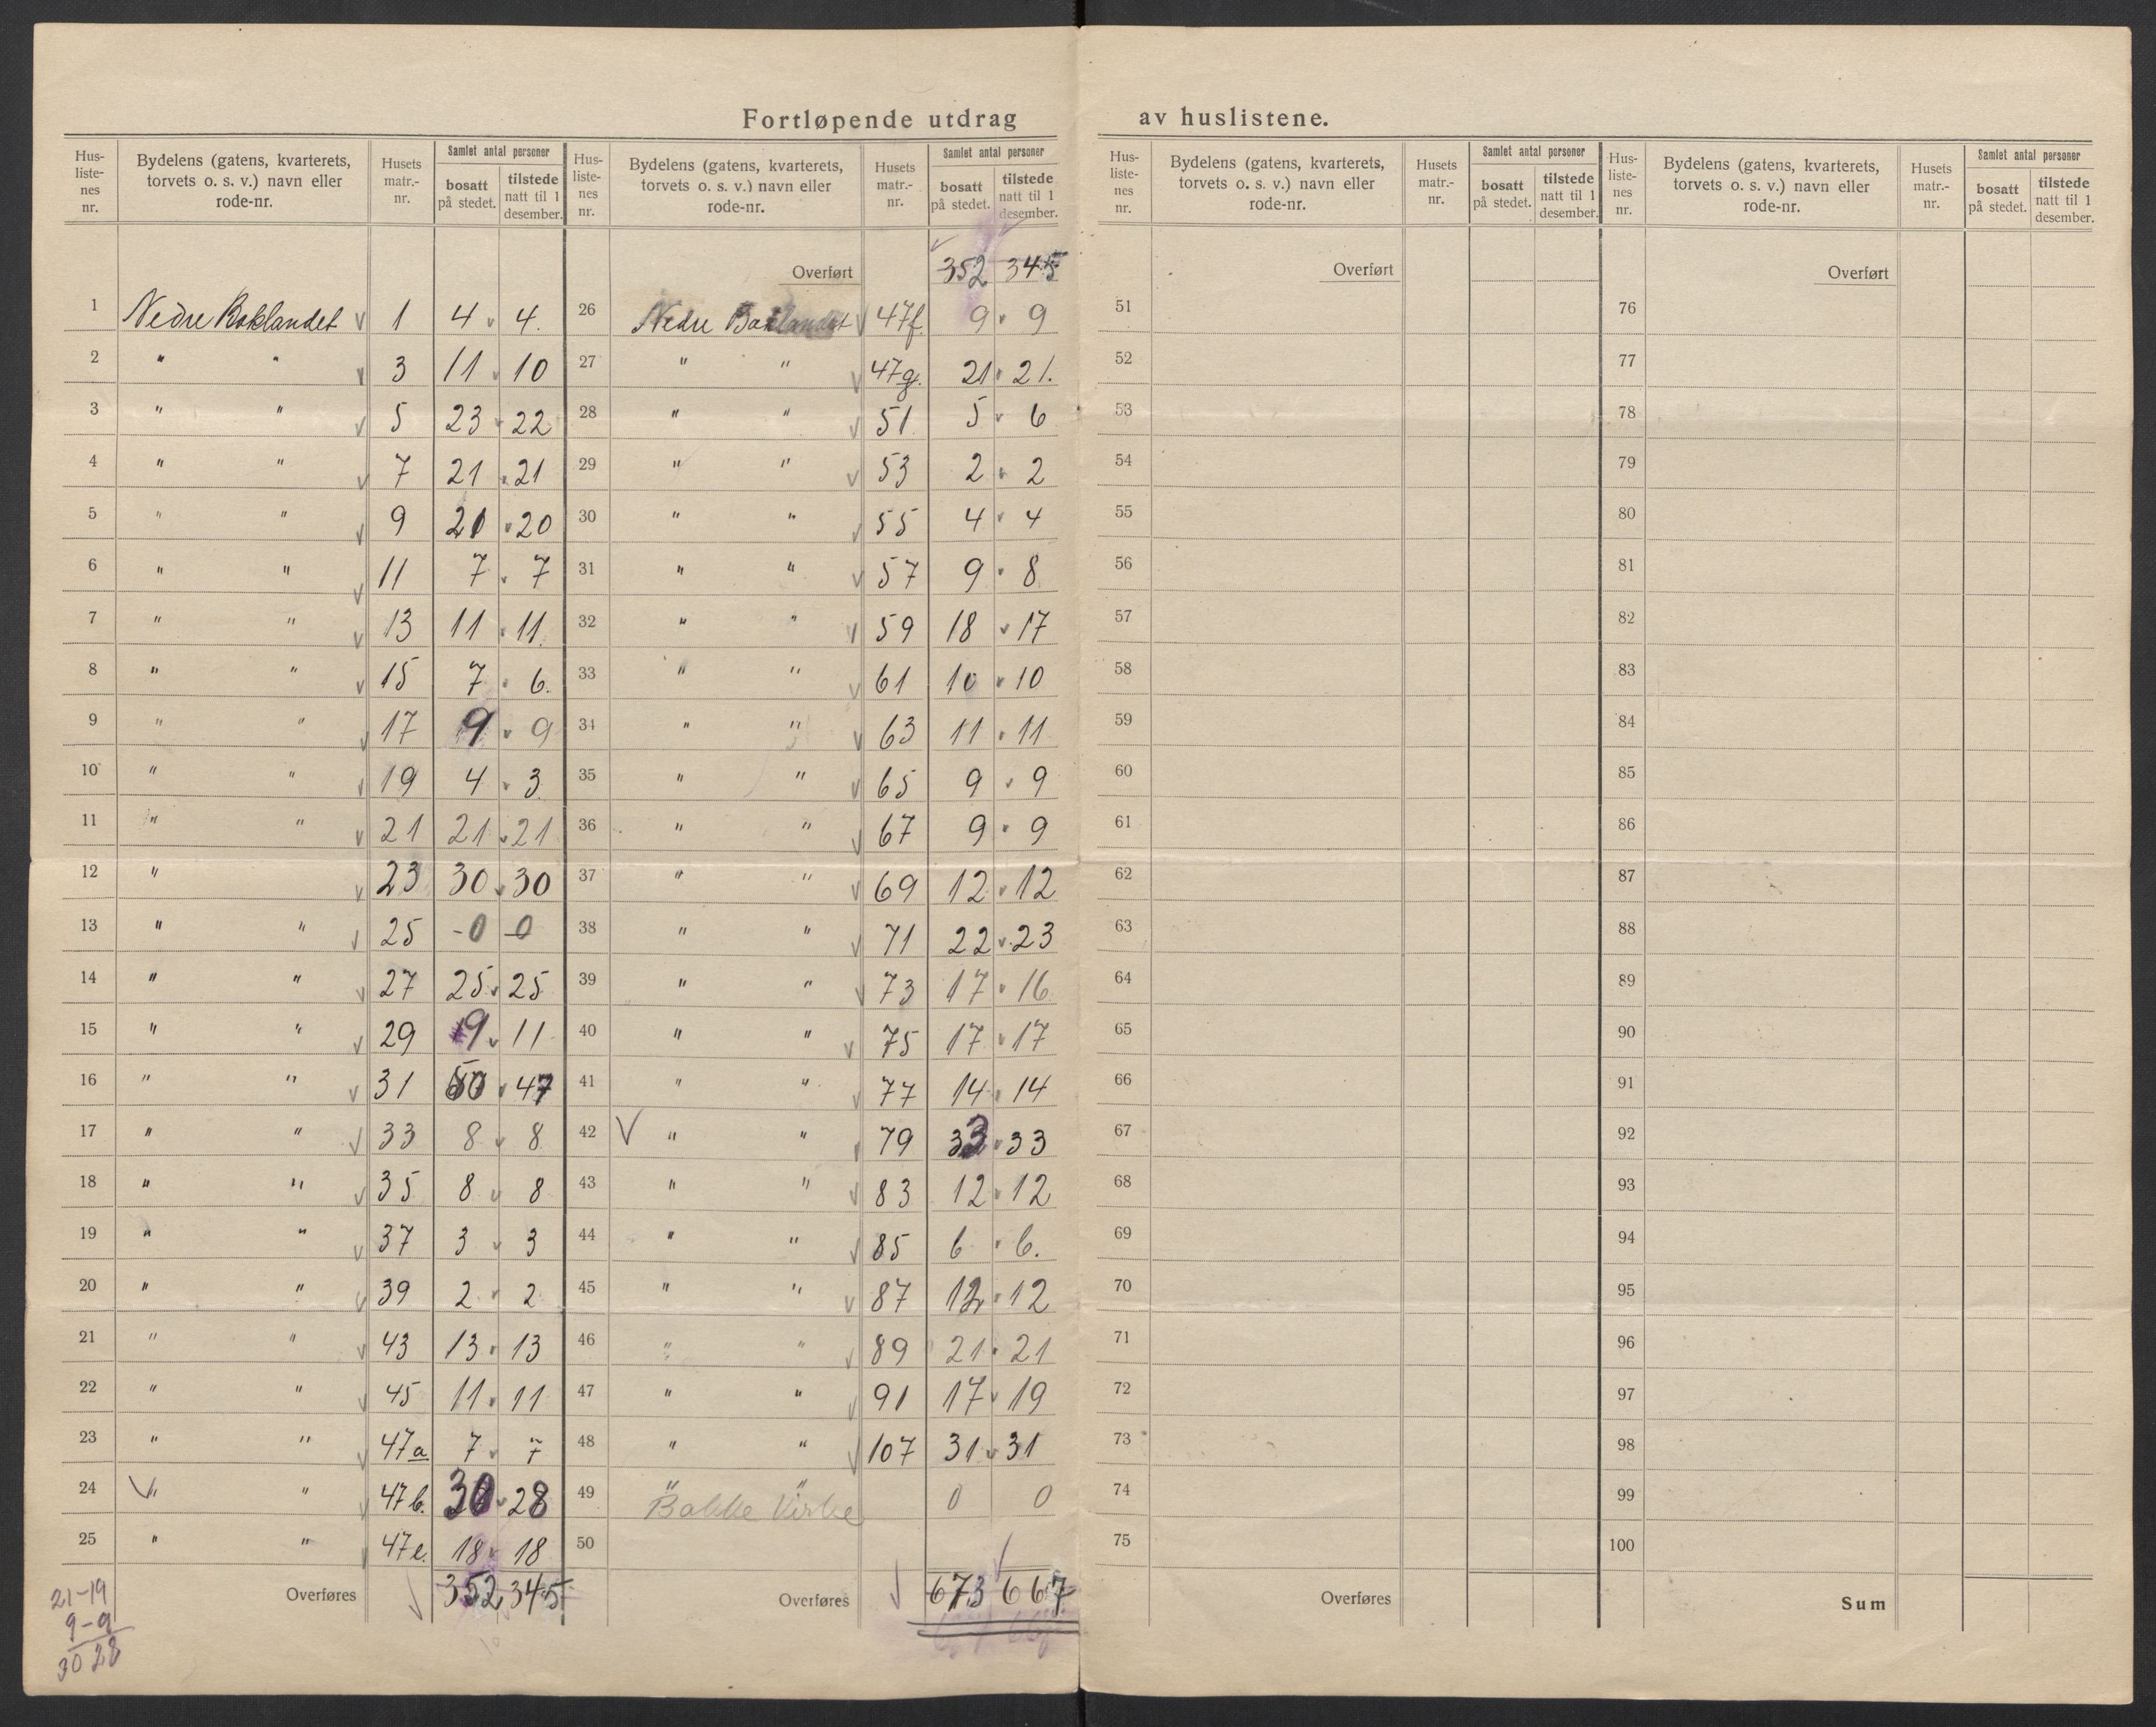 Fortløpende utdrag av huslistene.
Hus-liste-nes nr. | Bydelens (gatens, kvarterets, torvets o. s. v.) navn eller rode-nr. | Husets matr.-nr. | Samlet antal personer | bosatt på stedet. | tilstede natt til 1 desember.
1 Nedre Baklandet v 1 4 v 4.
2 " " v 3 11 v 10
3 " " v 5 23 v 22
4 " " v 7 21 v 21
5 " " v 9 20 v 20
6 " " v 11 7 v 7
7 " " v 13 11 v 11.
8 " " v 15 7 v 6.
9 " " v 17 9 v 9
10 " " v 19 4 v 3
11 " " v 21 21 v 21
12 " v 23 30 v 30
13 " " v 25 -0 -0
14 " " v 27 25 v 25
15 " " v 29 9 v 11
16 " " v 31 50 v 47
17 " " v 33 8 v 8
18 " " v 35 8 v 8
19 " " v 37 3 v 3
20 " " v 39 2 v 2
21 " " v 43 13 v 13
22 " " v 45 11 v 11
23 " " v 47a 7 v 7
24 V " " v 47b. 30 v 28
25 " " v 47e. 18 v 18
Overføres 352 345
21-19
9-9
30 28
Hus-liste-nes nr. | Bydelens (gatens, kvarterets, torvets o. s. v.) navn eller rode-nr. | Husets matr.-nr. | Samlet antal personer | bosatt på stedet. | tilstede natt til 1 desember.
Overført 352 345
26 Nedre Baklandet v 47f. 9 v 9
27 " " v 47g. 21 v 21.
28 " " v 51 5 v 6
29 " " v 53 2 v 2
30 " " v 55 4 v 4
31 " " v 57 9 v 8
32 " " v 59 18 v 17
33 " " v 61 10 v 10
34 " " v 63 11 v 11
35 " " v 65 9 v 9
36 " " v 67 9 v 9
37 " " v 69 12 v 12
38 " " v 71 22 v 23
39 " " v 73 17 v 16
40 " " v 75 17 v 17
41 " " v 77 14 v 14
42 V " " v 79 33 v 33
43 " " v 83 12 v 12
44 " " v 85 6 v 6.
45 " " v 87 12 v 12
46 " " v 89 21 v 21
47 " " v 91 17 v 19
48 " " v 107 31 v 31
49 " " Bakke Kirke 0 0
50
Overføres 673 667
Hus-liste-nes nr. | Bydelens (gatens, kvarterets, torvets o. s. v.) navn eller rode-nr. | Husets matr.-nr. | Samlet antal personer | bosatt på stedet. | tilstede natt til 1 desember.
Overført
51
52
53
54
55
56
57
58
59
60
61
62
63
64
65
66
67
68
69
70
71
72
73
74
75
Overføres
Hus-liste-nes nr. | Bydelens (gatens, kvarterets, torvets o. s. v.) navn eller rode-nr. | Husets matr.-nr. | Samlet antal personer | bosatt på stedet. | tilstede natt til 1 desember.
Overført
76
77
78
79
80
81
82
83
84
85
86
87
88
89
90
91
92
93
94
95
96
97
98
99
100
Sum